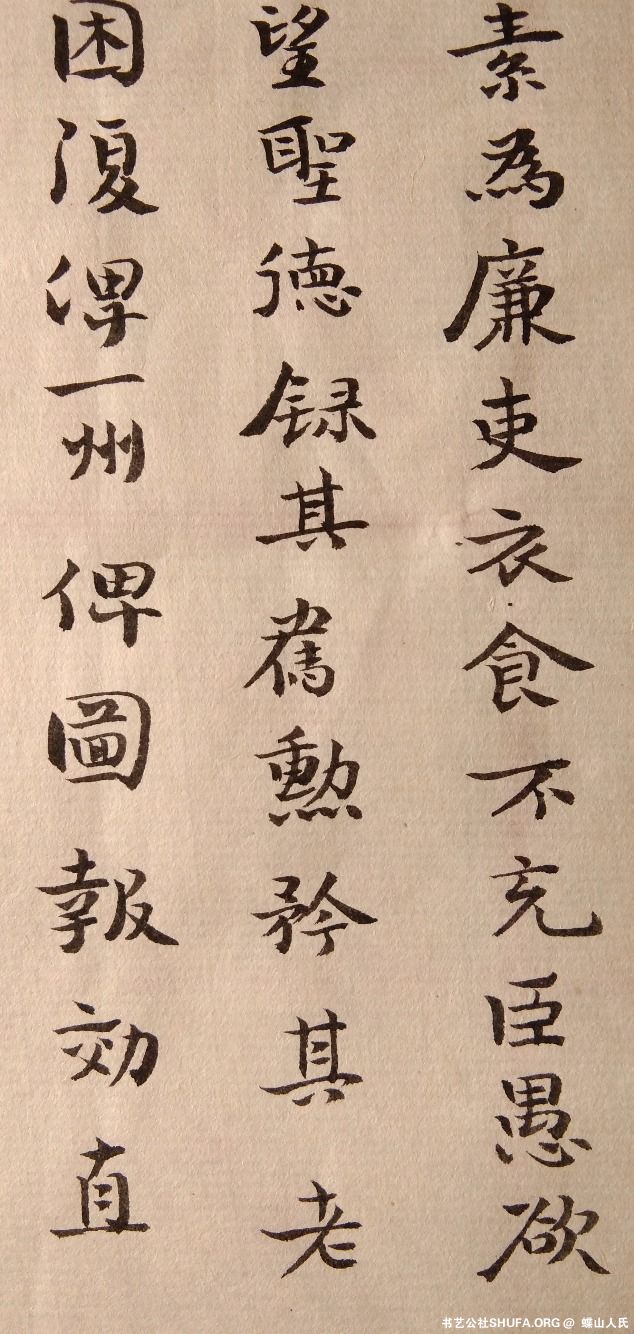 素為廉吏衣食不充臣愚欲
望聖德錄其舊勳矜其老
困復俾一州俾圖報効直
书艺公社SHUFA.ORG @ 蝶山人氏